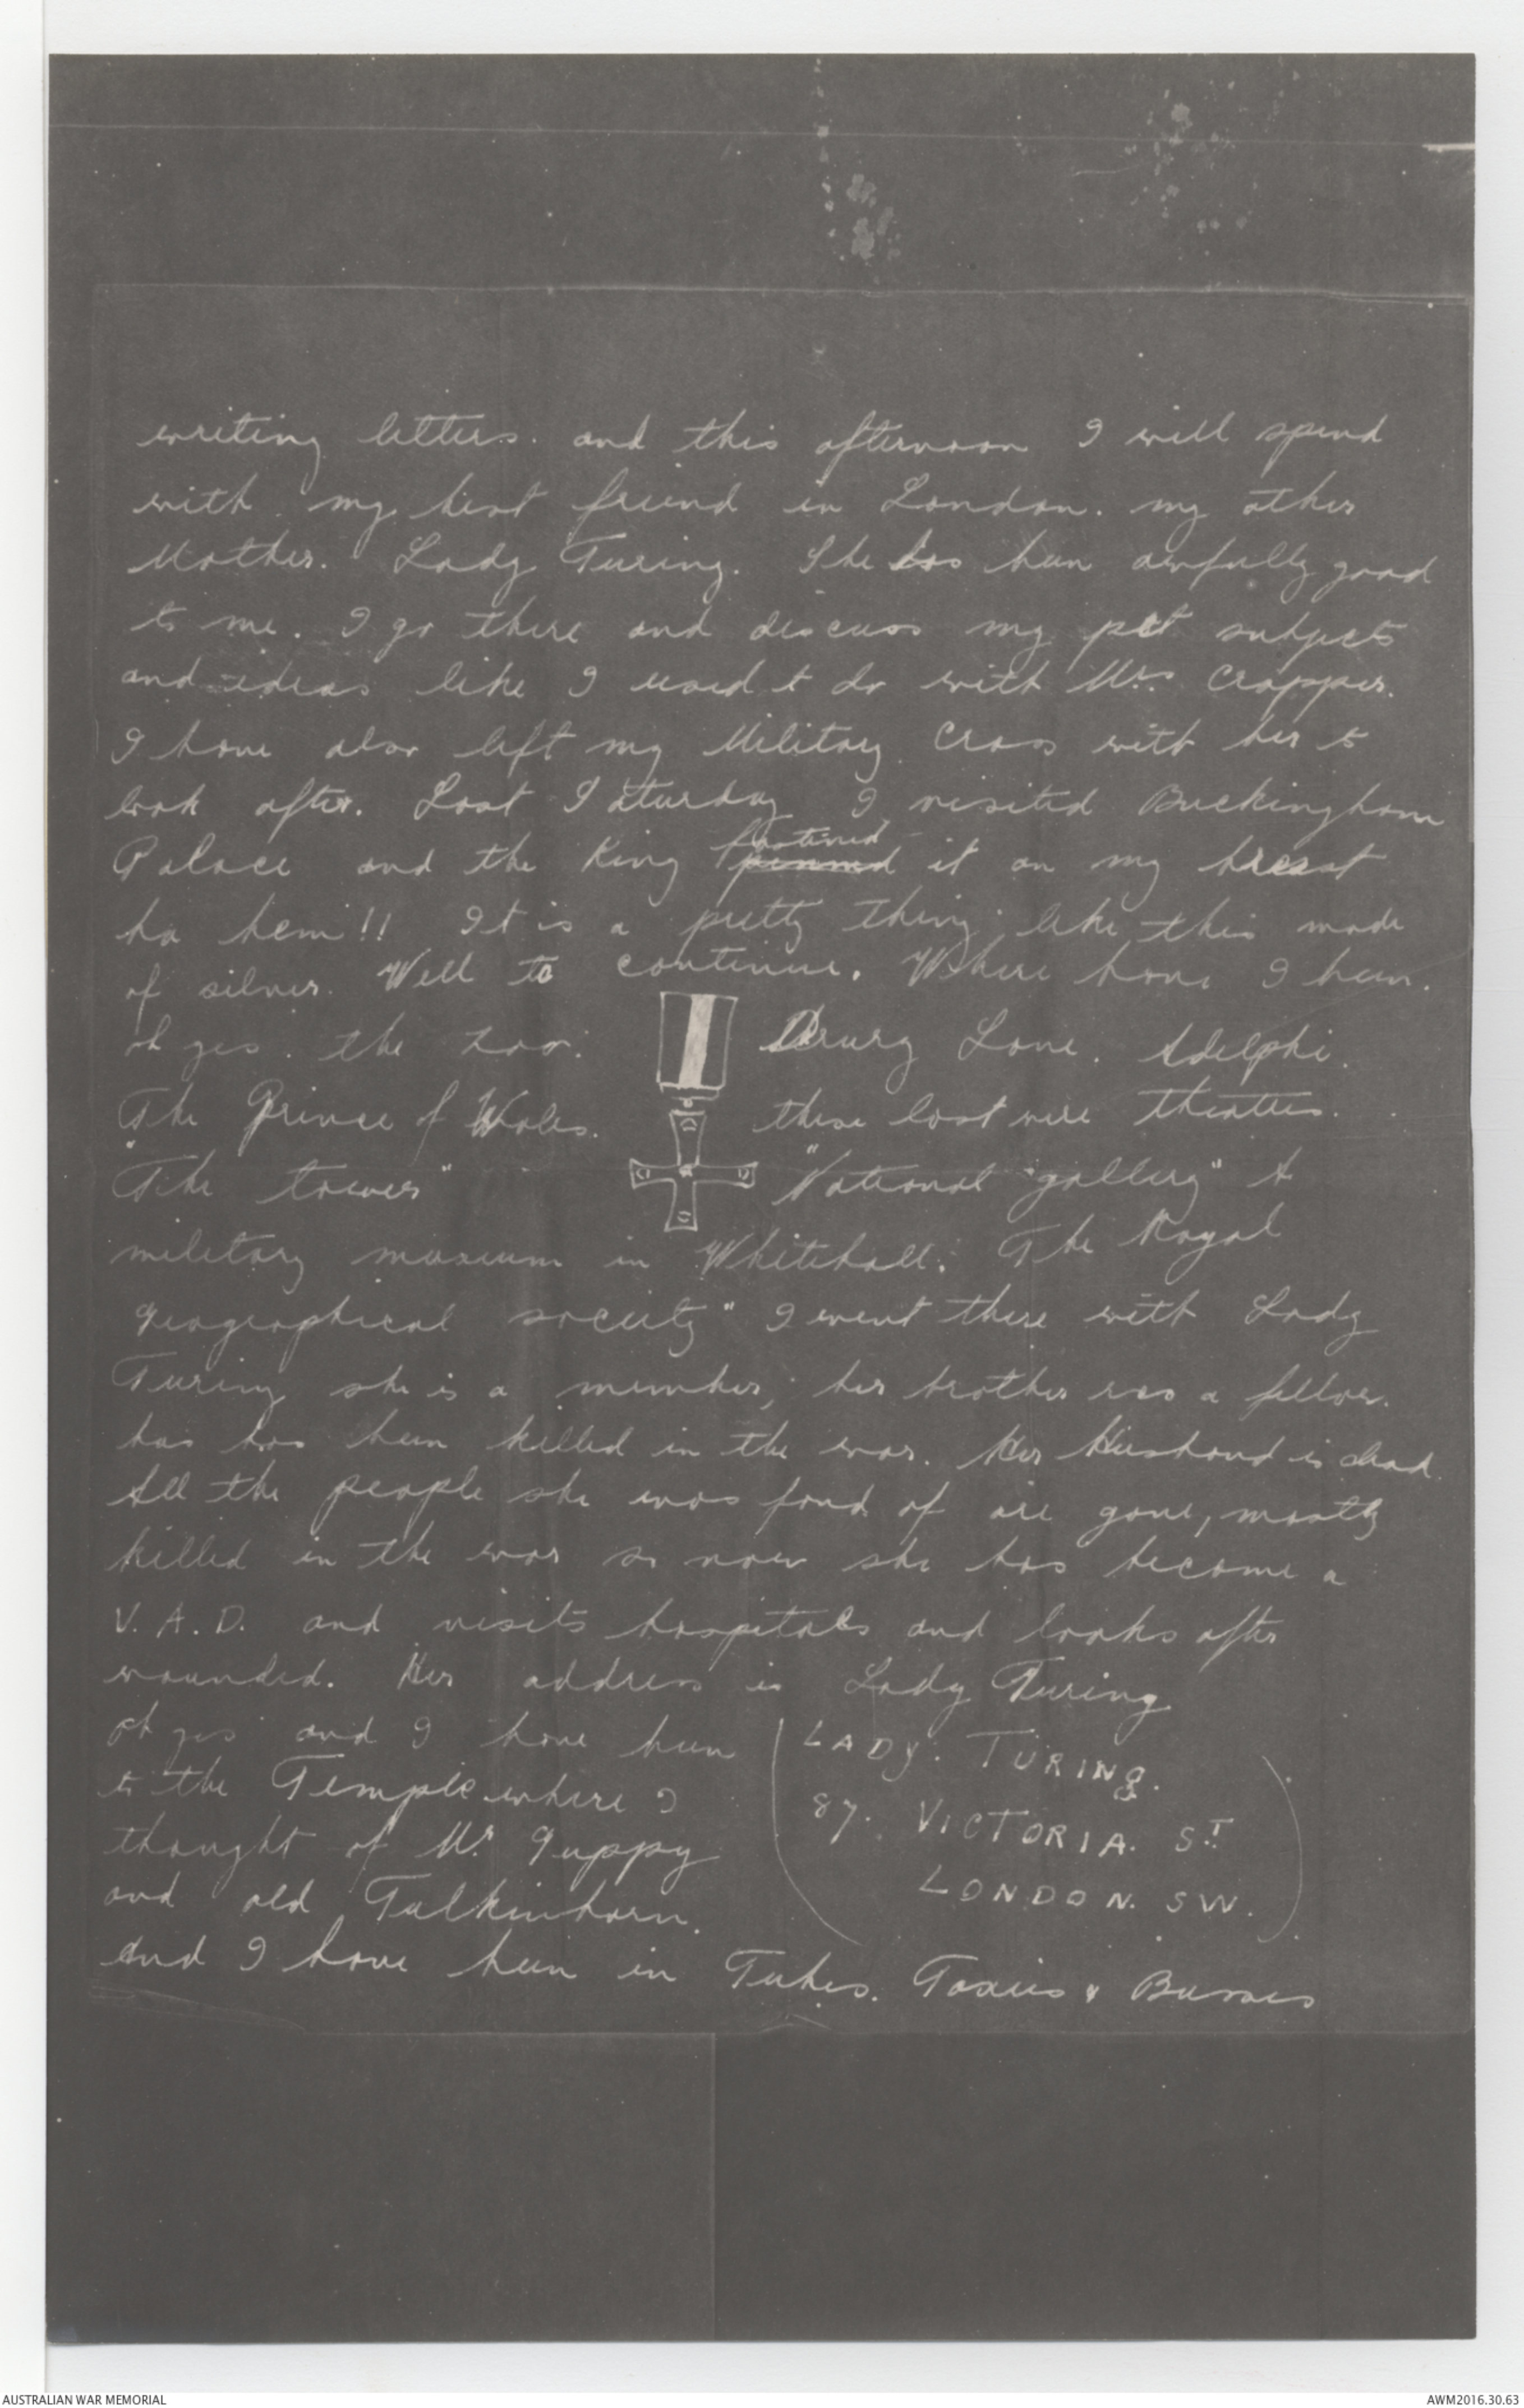 writing letters. and this afternoon I will spend
with my best friend in London. my other
Mother. Lady Turing. She has been awfully good
to me. I go there and discuss my pet subjects
and ideas like I used to do with Mrs Cropper.
I have also left my Military Cross with her to
look after. Last Saturday I visited Buckingham
Palace and the King pinned fastened it on my breast
ha hem!! It is a pretty thing like this made
of silver. Well to continue. Where have I been.
oh yes. the zoo. Drury Lane. Adelphi.
The Prince of Wales. these last were theatres.
"The tower" "National gallery" A
military museum in Whitehall. The Royal
Geographical society" I went there with Lady
Turing she is a member, her brother was a fellow.
has has been killed in the war. Her Husband is dead.
All the people she was fond of are gone, mostly
killed in the war so now she has become a
V.A.D. and visits hospitals and looks after
wounded. Her address is Lady Turing
oh yes and I have been
to the Temple where I
thought of Mr. Guppy
and old Tulkinhorn.
(LADY. TURING.
87. VICTORIA. ST.
LONDON. SW.)
And I have been in Tubes. Taxies & Busses
AUSTRALIAN WAR MEMORIAL
AWM2016.30.63